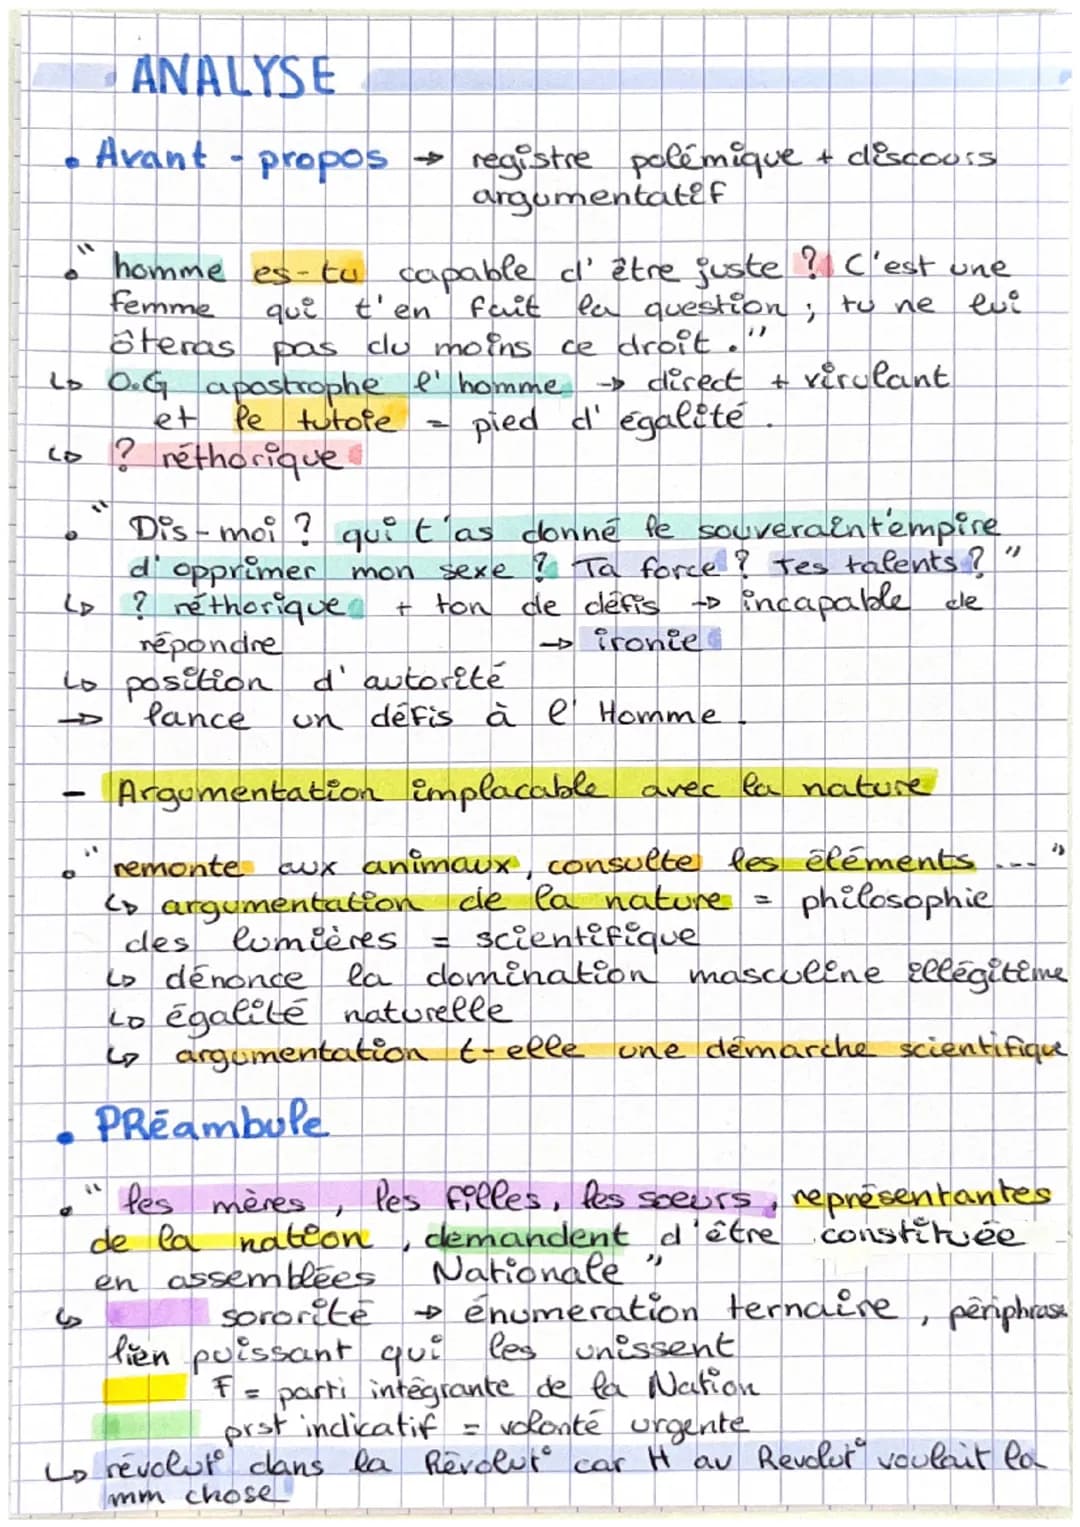 ANALYSE
• Avant - propos → registre polémique + discours
argumentatif
• " homme es-tu capable d'être juste ? C'est une
femme qui t'en fait la question ; tu ne lui
ôteras pas du moins ce droit."
↳ O.G apostrophe l'homme → direct + virulant
et le tutoie = pied d'égalité.
↳ ? réthorique
• " Dis-moi ? qui t'as donné le souveraint'empire
d'opprimer mon sexe ? Ta force ? Tes talents ? "
↳ ? réthorique + ton de défis → incapable de
répondre → ironie
↳ position d'autorité
→ lance un défis à l'Homme.
- Argumentation implacable avec la nature
• " remonte aux animaux, consulte les éléments ... "
↳ argumentation de la nature = philosophie
des lumières = scientifique
↳ dénonce la domination masculine illégitime
↳ égalité naturelle
↳ argumentation t-elle une démarche scientifique
• PRéambule
• " les mères, les filles, les soeurs, représentantes
de la nation, demandent d'être constituée
en assemblées Nationale "
↳ sororité → énumeration ternaire, périphrase
lien puissant qui les unissent
F = parti intégrante de la Nation
prst indicatif = volonté urgente
↳ révolut° dans la Révolut° car H av Revolut° voulait la
mm chose